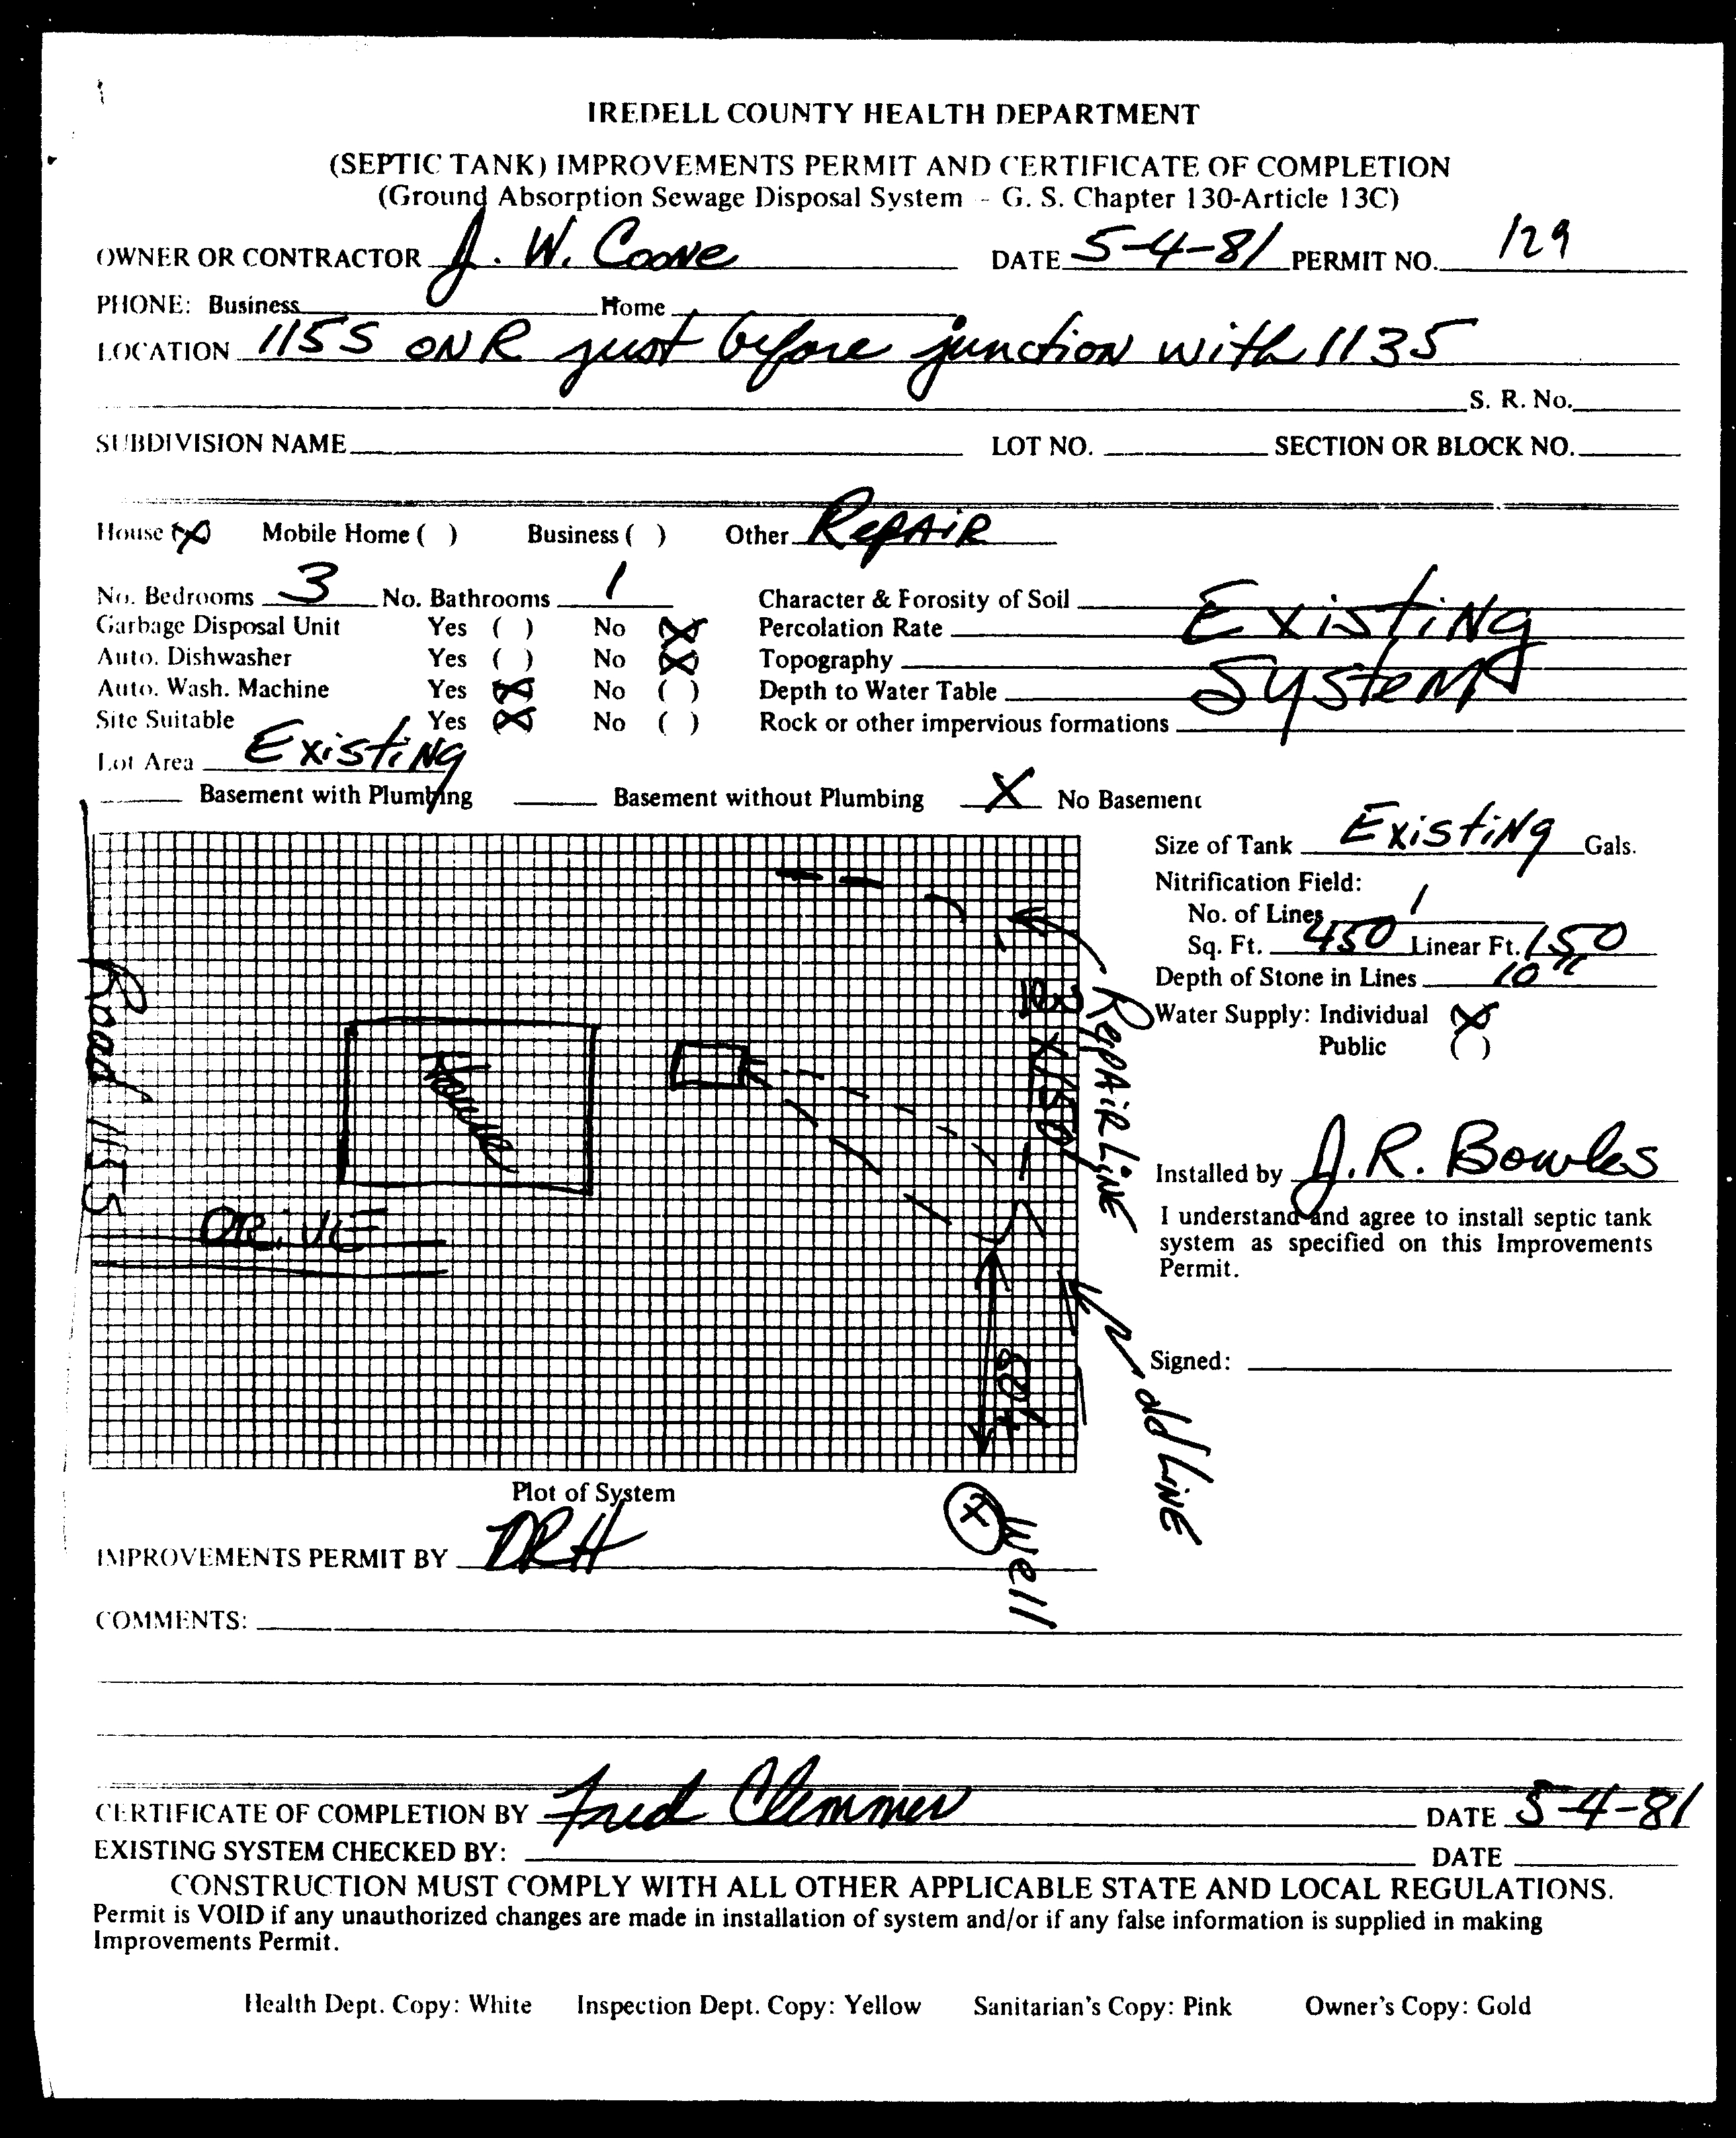 IREDELL COUNTY HEALTH DEPARTMENT
(SEPTIC TANK) IMPROVEMENTS PERMIT AND CERTIFICATE OF COMPLETION
(Ground Absorption Sewage Disposal System - G. S. Chapter 130-Article 13C)
OWNER OR CONTRACTOR J. W. Coone DATE 5-4-81 PERMIT NO. 129
PHONE: Business Home
LOCATION 115S ON R just before junction with 1135
S. R. No.
SUBDIVISION NAME LOT NO. SECTION OR BLOCK NO.
House (X) Mobile Home ( ) Business ( ) Other Repair
No. Bedrooms 3 No. Bathrooms 1 Character & Forosity of Soil Existing
Garbage Disposal Unit Yes ( ) No (X) Percolation Rate
Auto. Dishwasher Yes ( ) No (X) Topography System
Auto. Wash. Machine Yes (X) No ( ) Depth to Water Table
Site Suitable Yes (X) No ( ) Rock or other impervious formations
Lot Area Existing
Basement with Plumbing Basement without Plumbing X No Basement
Size of Tank Existing Gals.
Nitrification Field:
No. of Lines 1
Sq. Ft. 450 Linear Ft. 150
Depth of Stone in Lines 10"
Water Supply: Individual (X)
Public ( )
Road 115S
House
DRiVE
x150'
RepAiR LiNE
80'+
old LiNE
Well
Installed by J.R. Bowles
I understand and agree to install septic tank
system as specified on this Improvements
Permit.
Signed:
Plot of System
IMPROVEMENTS PERMIT BY DRH
COMMENTS:
CERTIFICATE OF COMPLETION BY Fred Clemmer DATE 5-4-81
EXISTING SYSTEM CHECKED BY: DATE
CONSTRUCTION MUST COMPLY WITH ALL OTHER APPLICABLE STATE AND LOCAL REGULATIONS.
Permit is VOID if any unauthorized changes are made in installation of system and/or if any false information is supplied in making
Improvements Permit.
Health Dept. Copy: White Inspection Dept. Copy: Yellow Sanitarian's Copy: Pink Owner's Copy: Gold